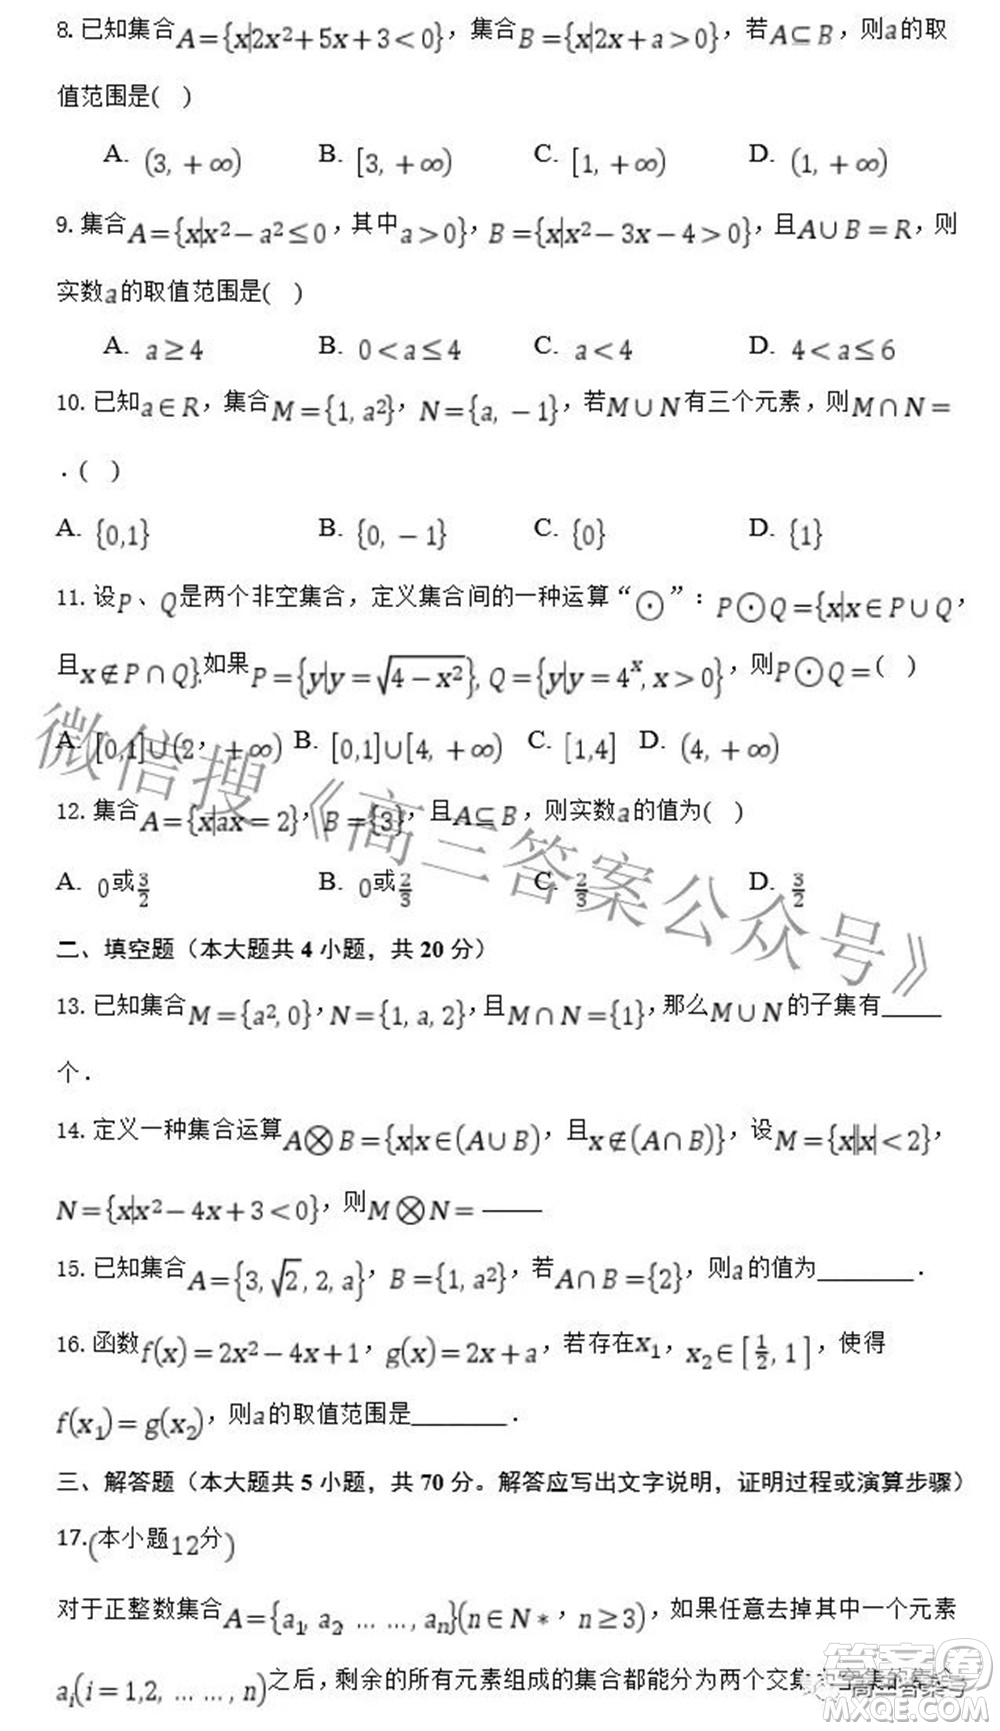 8. 已知集合A={x|2x²+5x+3<0}，集合B={x|2x+a>0}，若A⊆B，则a的取
值范围是(   )
A. (3, +∞)   B. [3, +∞)   C. [1, +∞)   D. (1, +∞)
9. 集合A={x|x²−a²≤0，其中a>0}，B={x|x²−3x−4>0}，且A∪B=R，则
实数a的取值范围是(   )
A. a≥4   B. 0<a≤4   C. a<4   D. 4<a≤6
10. 已知a∈R，集合M={1, a²}，N={a, −1}，若M∪N有三个元素，则M∩N=
.(   )
A. {0,1}   B. {0, −1}   C. {0}   D. {1}
11. 设P、Q是两个非空集合，定义集合间的一种运算“⊙”：P⊙Q={x|x∈P∪Q，
且x∉P∩Q}.如果P={y|y=√(4−x²)}, Q={y|y=4ˣ, x>0}，则P⊙Q=(   )
A. [0,1]∪(2，+∞)   B. [0,1]∪[4, +∞)   C. [1,4]   D. (4, +∞)
12. 集合A={x|ax=2}，B={3}，且A⊆B，则实数a的值为(   )
A. 0或3/2   B. 0或2/3   C. 2/3   D. 3/2
二、填空题（本大题共 4 小题，共 20 分）
13. 已知集合M={a², 0}，N={1, a, 2}，且M∩N={1}，那么M∪N的子集有_____
个．
14. 定义一种集合运算A⊗B={x|x∈(A∪B)，且x∉(A∩B)}，设M={x||x|<2}，
N={x|x²−4x+3<0}，则M⊗N=_____
15. 已知集合A={3, √2, 2, a}，B={1, a²}，若A∩B={2}，则a的值为________．
16. 函数f(x)=2x²−4x+1，g(x)=2x+a，若存在x₁，x₂∈[1/2, 1]，使得
f(x₁)=g(x₂)，则a的取值范围是________．
三、解答题（本大题共 5 小题，共 70 分。解答应写出文字说明，证明过程或演算步骤）
17.(本小题12分)
对于正整数集合A={a₁, a₂, … …, aₙ}(n∈N*，n≥3)，如果任意去掉其中一个元素
aᵢ(i=1,2, … …, n)之后，剩余的所有元素组成的集合都能分为两个交集为空集的集合
微信搜《高三答案公众号》
答案圈
高三答案号